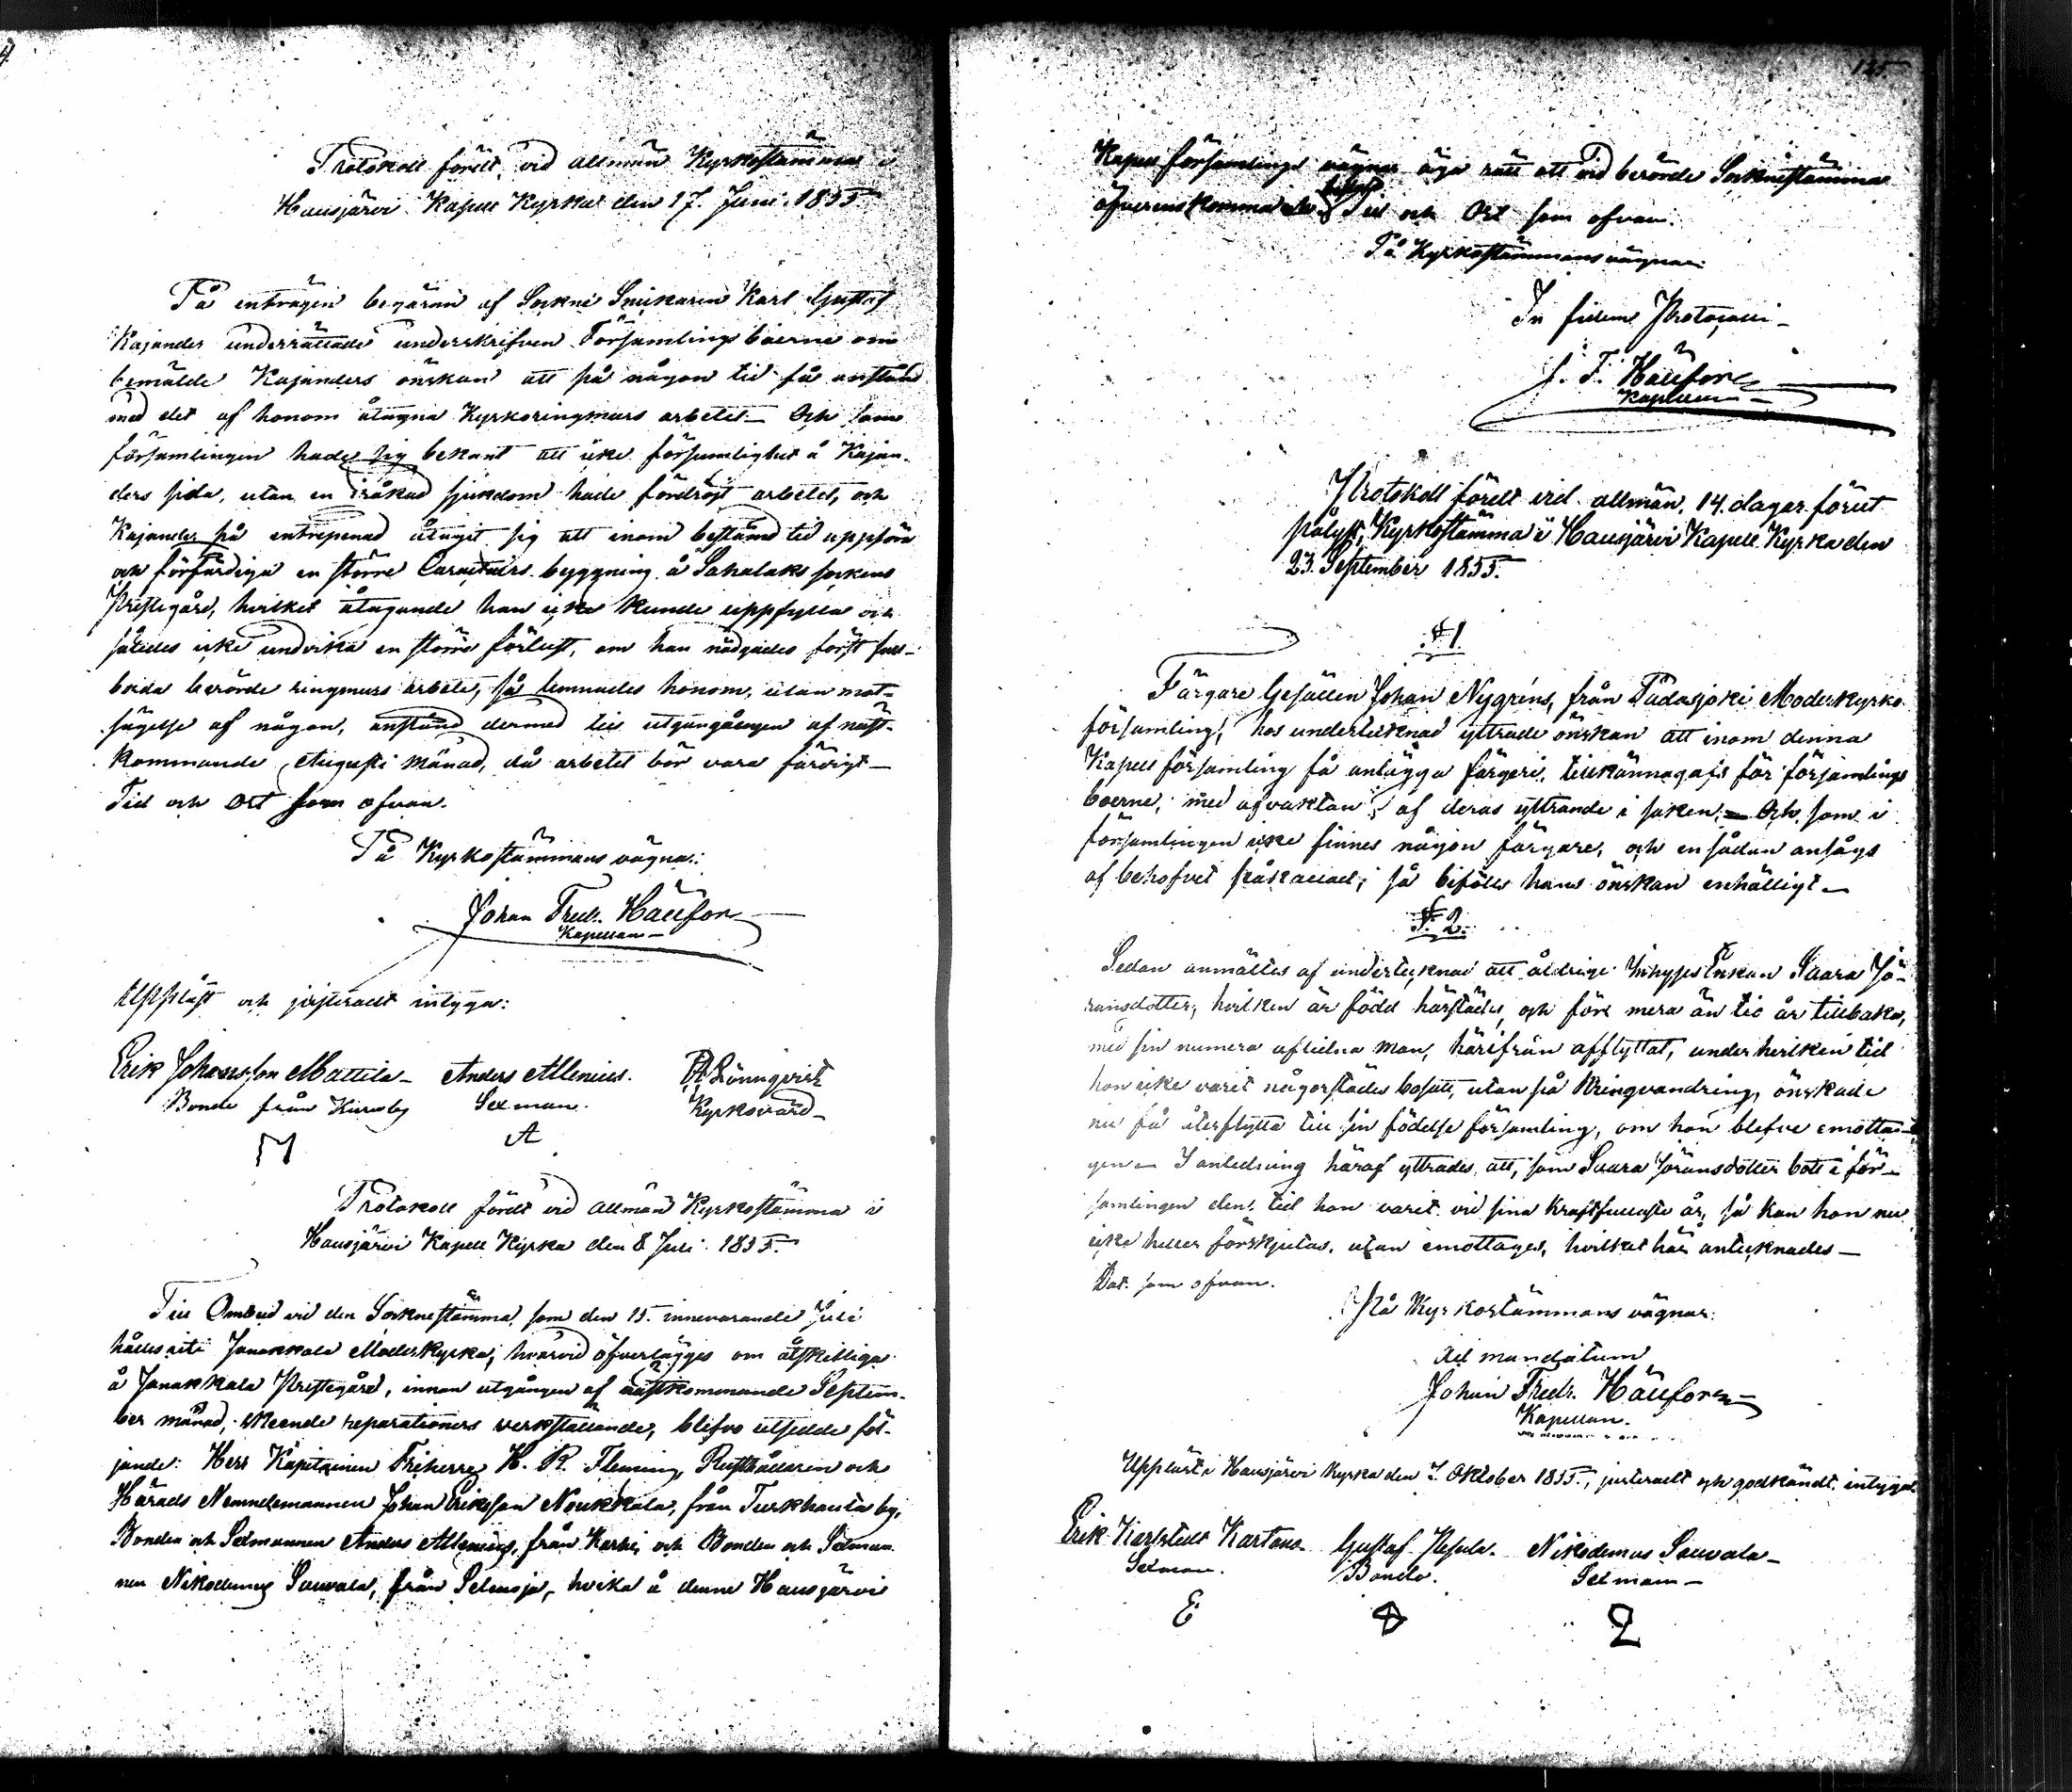 Protokoll fördt vid allmän Kyrkostämma i
Hausjärvi Kapell Kyrka den 17. Juni 1855.
På enträgen begäran af Sockne Snickaren Karl Gustaf
Kajander underrättade underskrifven Församlings boerne om
bemälde Kajanders önskan att på någon tid få anstånd
med det af honom åtagna Kyrkoringmurs arbetet – Och som
församlingen hade sig bekant att icke försumlighet å Kajan-
ders sida, utan en iråkad sjukdom hade fördröjt arbetet, och
Kajander på entrepenad åtagit sig att inom bestämd tid uppföra
och förfärdiga en större Caractairs byggning å Sahalaks sockens
Prestegård, hvilket åtagande han icke kunde uppfylla och
således icke undvika en större förlust, om han nödgades först full-
borda berörde ringmurs arbete, så lemnades honom, utan mot-
sägelse af någon, anstånd dermed till utgången af näst-
kommande Augusti månad, då arbetet bör vara färdigt –
Tid och Ort som ofvan.
På Kyrkostämmans vägnar:
Johan Fredr. Häüfor
Kapellan –
Uppläst och justeradt intyga:
Erik Johansson Mattila – Anders Allenius. Lönnqvist
Bonde från Sexman. Kyrkovärd –
M A
Protokoll fördt vid allmän Kyrkostämma i
Hausjärvi Kapell Kyrka den 8 Juli 1855.
Till Ombud vid den Socknestämma, som den 15. innevarande Juli
hålles uti Janakkala Moderkyrka, hvarvid öfverlägges om åtskilliga
å Janakkala Prestegård, innan utgången af nästkommande Septem-
ber månad, skeende reparationers verkställande, blifvo utsedde föl-
jande: Herr Kapitainen Friherre H. R. Fleming, Rusthållaren och
Härads Nämndemannen Johan Eriksson Noukkala, från Turkhauta by,
Bonden och Sexmannen Anders Allenius, från Karhi, och Bonden och Sexman
nen Nikodemus Sauvala, från Selänoja, hvilka å denne Hausjärvi
125
Kapell församlings vägnar äga rätt att vid berörde Socknestämma
öfverenskomma och Tid och Ort som ofvan.
På Kyrkostämmans vägnar:
In fidem Protocolli –
J. F. Häüfor
Kapellan –
Protokoll fördt vid allmän, 14. dagar förut
pålyst, Kyrkostämma i Hausjärvi Kapell Kyrka den
23. September 1855.
§ 1.
Färgare Gesällen Johan Nygréns, från Padasjoki Moderkyrko-
församling, hos undertecknad yttrade önskan att inom denna
Kapell församling få anlägga färgeri, tillkännagafs för församlings
boerne, med afvaktan af deras yttrande i saken; – Och som i
församlingen icke finnes någon färgare, och en sådan ansågs
af behofvet påkallad; så bifölls hans önskan enhälligt –
§. 2.
Sedan anmältes af undertecknad att åldrige Inhyses Enkan Saara Jö-
ransdotter, hvilken är född härstädes, och före mera än tio år tillbaka,
med sin numera aflidna man, härifrån afflyttat, under hvilken tid
hon icke varit någorstädes bosatt, utan på Kringvandring, önskade
nu få återflytta till sin födelse församling, om hon blefve emotta-
gen – I anledning häraf yttrades att, som Saara Jöransdotter bott i för-
samlingen den tid hon varit vid sina kraftfullaste år, så kan hon nu
icke heller förskjutas, utan emottages, hvilket här antecknades –
Dat. som ofvan.
På Kyrkostämmans vägnar:
Ad mandatum
Johan Fredr. Häüfor
Kapellan.
Uppläst i Hausjärvi Kyrka den 7. Oktober 1855., justeradt och godkändt, intyga:
Erik Karlstedt Kartano – Gustaf – Nikodemus Sauvala –
Sexman. Bonde. Sexman –
E 2